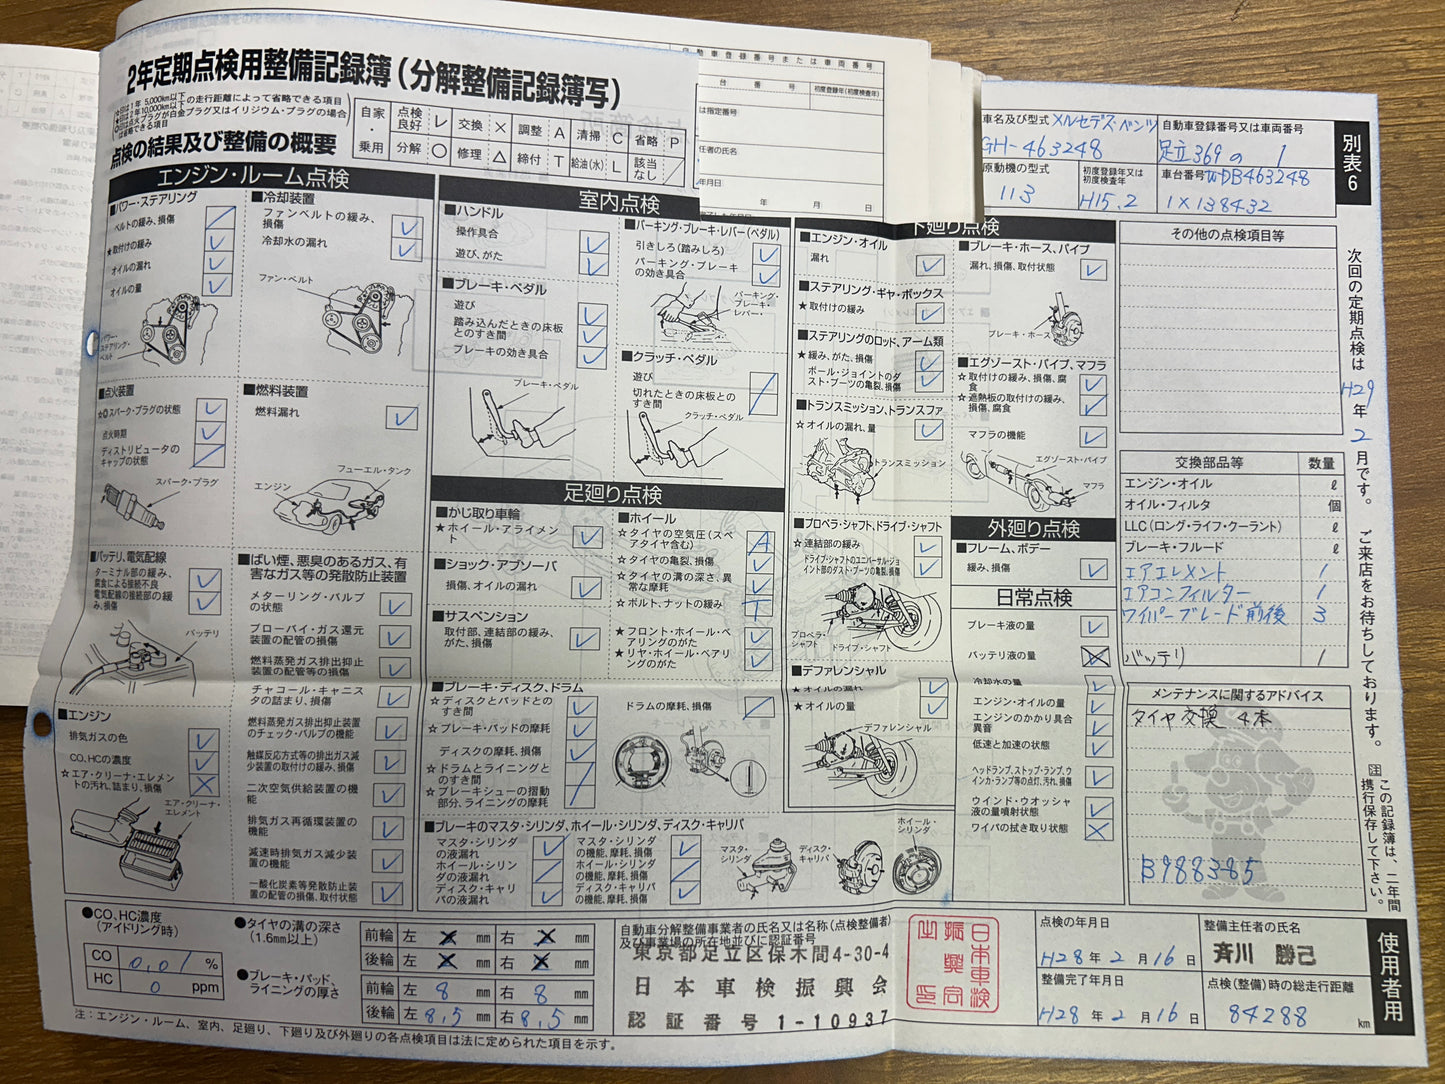 2年定期点検用整備記録簿(分解整備記録簿写)
★印は1年 5,000km以下
☆印は2年 10,000km以下 の走行距離によって省略できる項目
点火プラグが白金プラグ又はイリジウム・プラグの場合
は省略できる項目
点検の結果及び整備の概要
自家・乗用
点検良好 レ 交換 × 調整 A 清掃 C 省略 P
分解 ○ 修理 △ 締付 T 給油(水) L 該当なし /
自動車登録番号または車両番号
台 番 号
初度登録年(初度検査年)
は指定番号
任者の氏名
年月日
年 月 日
車名及び型式 メルセデス・ベンツ
GH-463248
自動車登録番号又は車両番号
足立369の 1
原動機の型式
113
初度登録年又は初度検査年
H15.2
車台番号 WDB463248
1X138432
別表6
エンジン・ルーム点検
■パワー・ステアリング
ベルトの緩み、損傷
★取付けの緩み
オイルの漏れ
オイルの量
パワー・ステアリング・ベルト
■冷却装置
ファンベルトの緩み、損傷
冷却水の漏れ
ファン・ベルト
■点火装置
スパーク・プラグの状態
点火時期
ディストリビュータのキャップの状態
スパーク・プラグ
■燃料装置
燃料漏れ
フューエル・タンク
エンジン
■バッテリ、電気配線
ターミナル部の緩み、腐食による接続不良
電気配線の接続部の緩み、損傷
バッテリ
■エンジン
排気ガスの色
CO、HCの濃度
☆エア・クリーナ・エレメントの汚れ、詰まり、損傷
エア・クリーナ・エレメント
■ばい煙、悪臭のあるガス、有害なガス等の発散防止装置
メターリング・バルブの状態
ブローバイ・ガス還元装置の配管の損傷
燃料蒸発ガス排出抑止装置の配管等の損傷
チャコール・キャニスタの詰まり、損傷
燃料蒸発ガス排出抑止装置のチェック・バルブの機能
触媒反応方式等の排出ガス減少装置の取付けの緩み、損傷
二次空気供給装置の機能
排気ガス再循環装置の機能
減速時排気ガス減少装置の機能
一酸化炭素等発散防止装置の配管の損傷、取付状態
室内点検
■ハンドル
操作具合
遊び、がた
■ブレーキ・ペダル
遊び
踏み込んだときの床板とのすき間
ブレーキの効き具合
ブレーキ・ペダル
■パーキング・ブレーキ・レバー(ペダル)
引きしろ(踏みしろ)
パーキング・ブレーキの効き具合
パーキング・ブレーキ・レバー
■クラッチ・ペダル
遊び
切れたときの床板とのすき間
クラッチ・ペダル
足廻り点検
■かじ取り車輪
★ホイール・アライメント
■ショック・アブソーバ
損傷、オイルの漏れ
■サスペンション
取付部、連結部の緩み、がた、損傷
■ホイール
☆タイヤの空気圧(スペアタイヤ含む) A
☆タイヤの亀裂、損傷
☆タイヤの溝の深さ、異常な摩耗
☆ボルト、ナットの緩み T
★フロント・ホイール・ベアリングのがた
★リヤ・ホイール・ベアリングのがた
■ブレーキ・ディスク、ドラム
☆ディスクとパッドとのすき間
☆ブレーキ・パッドの摩耗
ディスクの摩耗、損傷
☆ドラムとライニングとのすき間
☆ブレーキシューの摺動部分、ライニングの摩耗
ドラムの摩耗、損傷
■ブレーキのマスタ・シリンダ、ホイール・シリンダ、ディスク・キャリパ
マスタ・シリンダの液漏れ
ホイール・シリンダの液漏れ
ディスク・キャリパの液漏れ
マスタ・シリンダの機能、摩耗、損傷
ホイール・シリンダの機能、摩耗、損傷
ディスク・キャリパの機能、摩耗、損傷
マスタ・シリンダ
ディスク・キャリパ
ホイール・シリンダ
下廻り点検
■エンジン・オイル
漏れ
■ステアリング・ギヤ・ボックス
★取付けの緩み
■ステアリングのロッド、アーム類
★緩み、がた、損傷
ボール・ジョイントのダスト・ブーツの亀裂、損傷
■トランスミッション、トランスファ
☆オイルの漏れ、量
トランスミッション
■プロペラ・シャフト、ドライブ・シャフト
★連結部の緩み
ドライブ・シャフトのユニバーサル・ジョイント部のダスト・ブーツの亀裂、損傷
プロペラ・シャフト
ドライブ・シャフト
■デファレンシャル
★オイルの漏れ
★オイルの量
デファレンシャル
■ブレーキ・ホース、パイプ
漏れ、損傷、取付状態
ブレーキ・ホース
■エグゾースト・パイプ、マフラ
☆取付けの緩み、損傷、腐食
☆遮熱板の取付けの緩み、損傷、腐食
マフラの機能
エグゾースト・パイプ
マフラ
外廻り点検
■フレーム、ボデー
緩み、損傷
日常点検
ブレーキ液の量
バッテリ液の量
冷却水の量
エンジン・オイルの量
エンジンのかかり具合異音
低速と加速の状態
ヘッドランプ、ストップ・ランプ、ウインカ・ランプ等の点灯、汚れ、損傷
ウインド・ウオッシャ液の量噴射状態
ワイパの拭き取り状態
その他の点検項目等
交換部品等 数量
エンジン・オイル ℓ
オイル・フィルタ 個
LLC(ロング・ライフ・クーラント) ℓ
ブレーキ・フルード ℓ
エアエレメント 1
エアコンフィルター 1
ワイパーブレード前後 3
バッテリ 1
メンテナンスに関するアドバイス
タイヤ交換 4本
B988385
次回の定期点検は H29年2月です。ご来店をお待ちしております。
注 この記録簿は、二年間携行保存して下さい。
使用者用
●CO、HC濃度(アイドリング時)
CO 0,01 %
HC 0 ppm
●タイヤの溝の深さ(1.6mm以上)
前輪 左 × mm 右 × mm
後輪 左 × mm 右 × mm
●ブレーキ・パッド、ライニングの厚さ
前輪 左 8 mm 右 8 mm
後輪 左 8.5 mm 右 8.5 mm
注:エンジン・ルーム、室内、足廻り、下廻り及び外廻りの各点検項目は法に定められた項目を示す。
自動車分解整備事業者の氏名又は名称(点検整備者)及び事業場の所在地並びに認証番号
東京都足立区保木間4-30-4
日本車検振興会
認証番号 1-10937
日本車検振興会之印
点検の年月日
H28年2月16日
整備完了年月日
H28年2月16日
整備主任者の氏名
斉川 勝己
点検(整備)時の総走行距離
84288 km